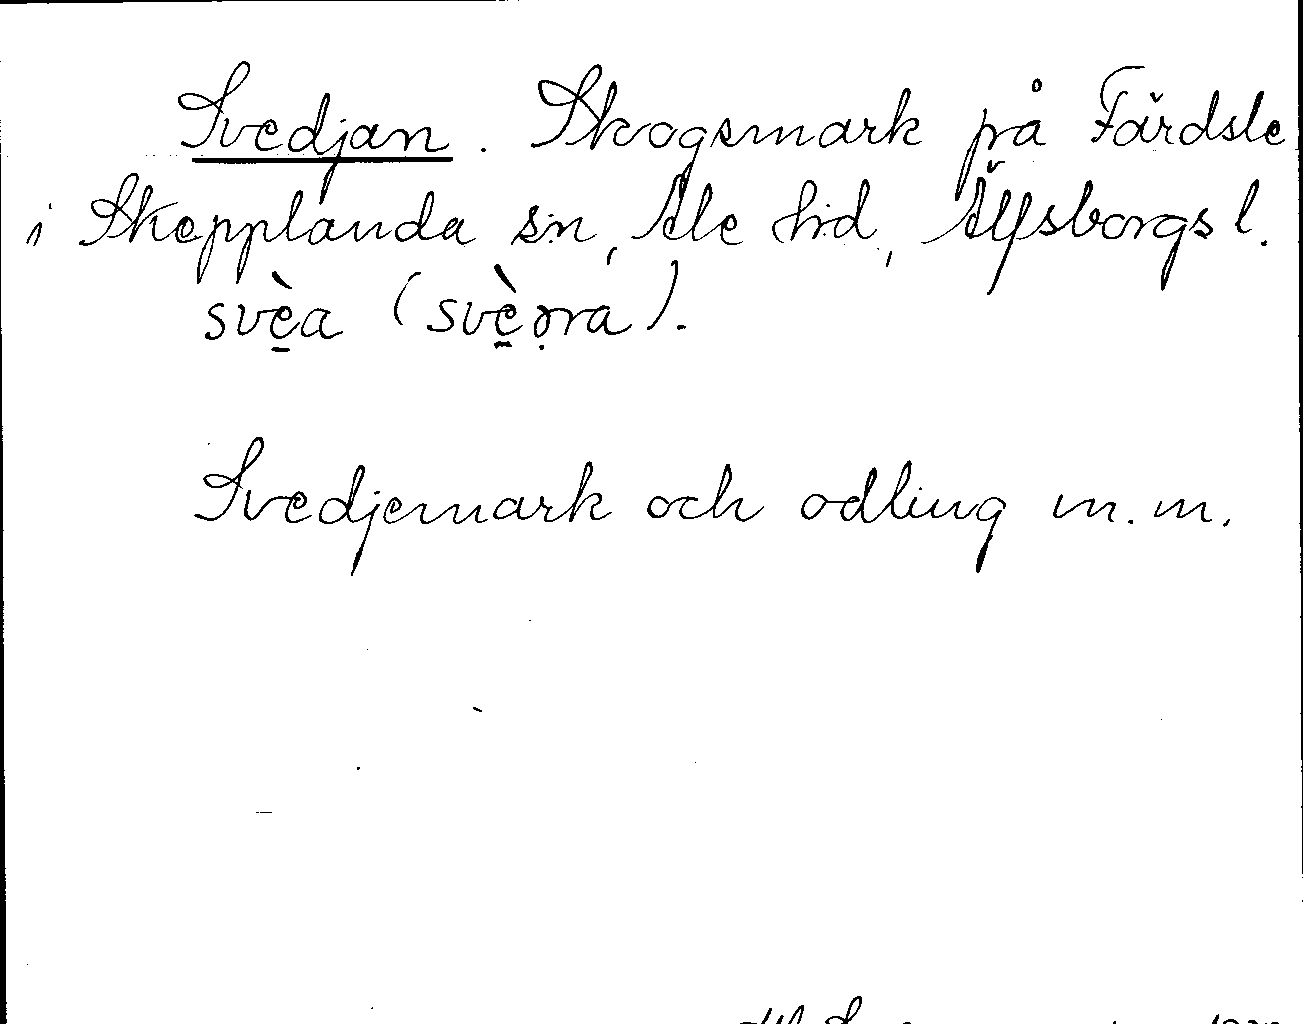 Svedjan. Skogsmark på Färdsle
i Skepplanda sn, Ale hd, Älfsborgs l.
svè̠a (svè̠ǝra).
Svedjemark och odling m.m.